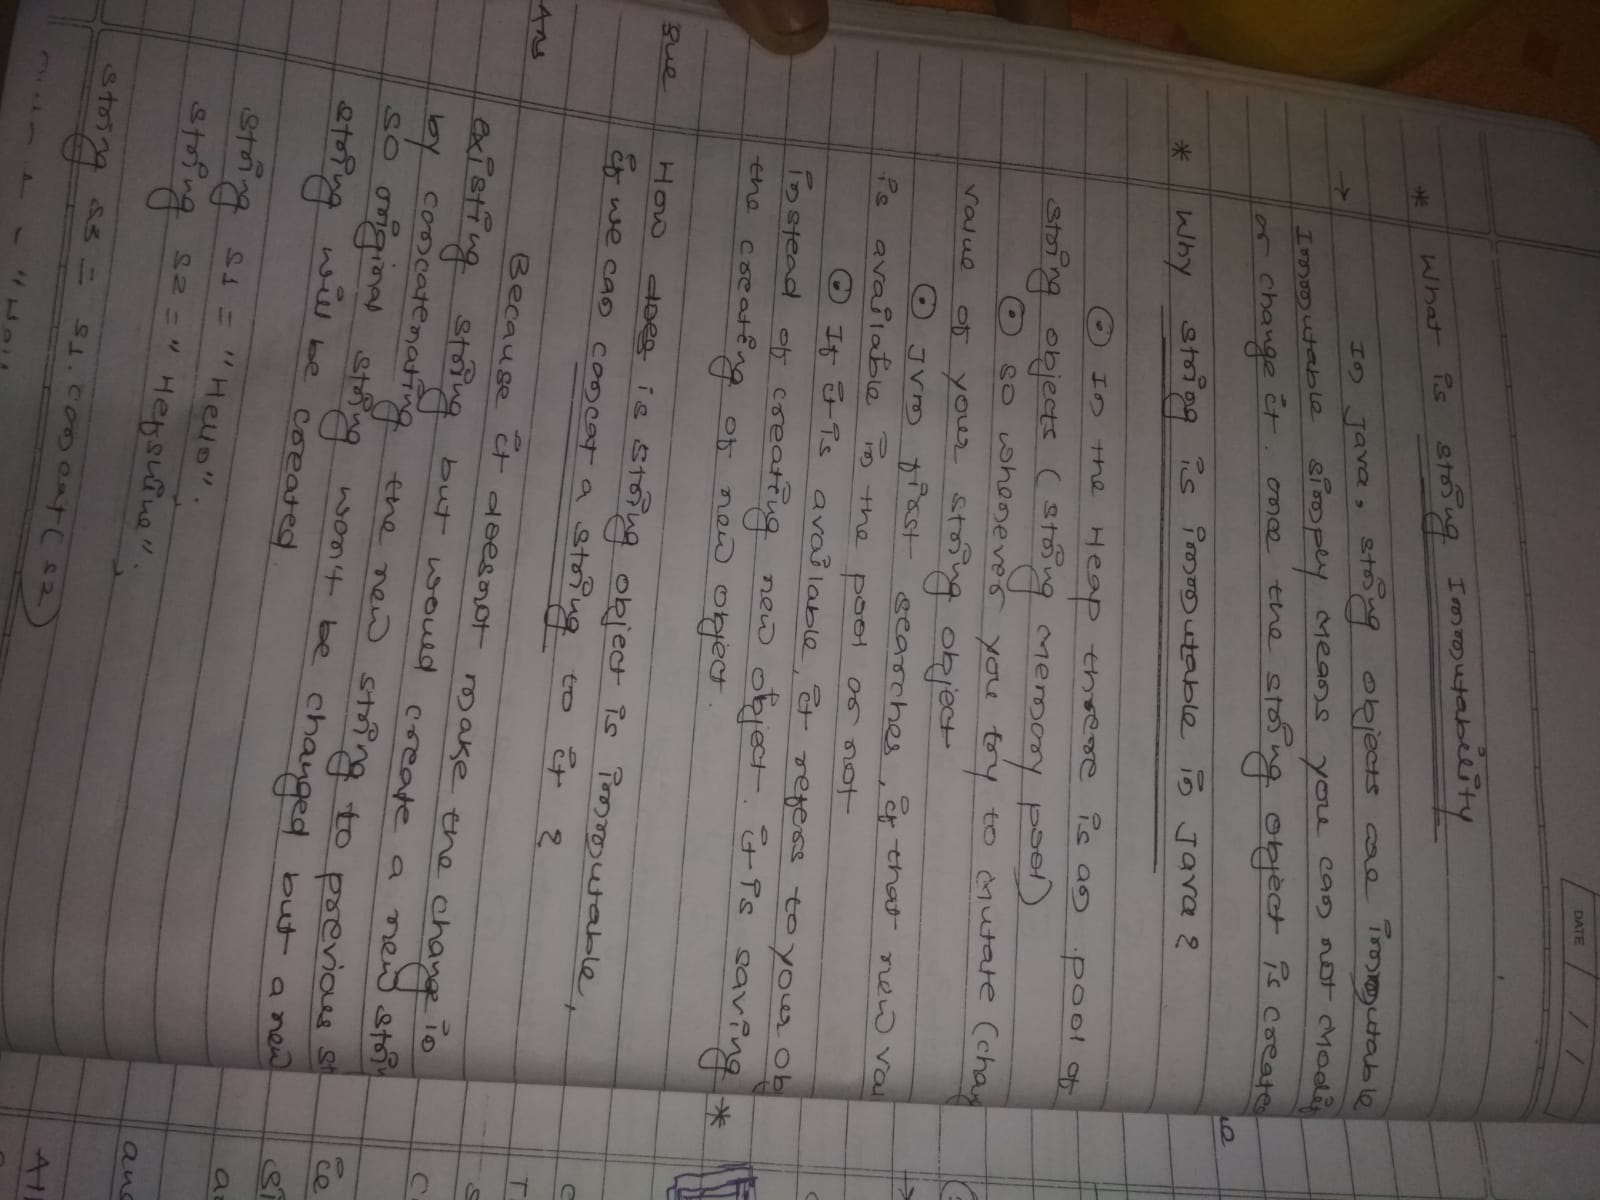 DATE / /
* What is string Immutability
→ In java, string objects are immutable
Immutable simply means you can not modify
or change it. once the string object is create
* Why string is immutable in Java?
⊙ In the Heap there is an pool of
string objects (string memory pool)
⊙ so whenever you try to mutate (chan
value of your string object
⊙ JVM first searches, if that new val
is available in the pool or not
⊙ If it is available, it refers to your ob
instead of creating new object. it is saving
the creating of new object.
que How does is string object is immutable,
if we can concat a string to it ?
Ans Because it doesnot make the change in
existing string but would create a new strin
by concatenating the new string to previous st
so original string won't be changed but a new
string will be created.
string s1 = "Hello";
string s2 = "Helpsline";
string s3 = s1.concat(s2)